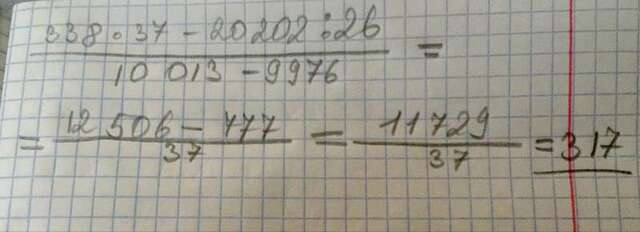 338 · 37 - 20202 : 26
10 013 - 9976
=
= 12 506 - 777 = 11729 = 317
37 37